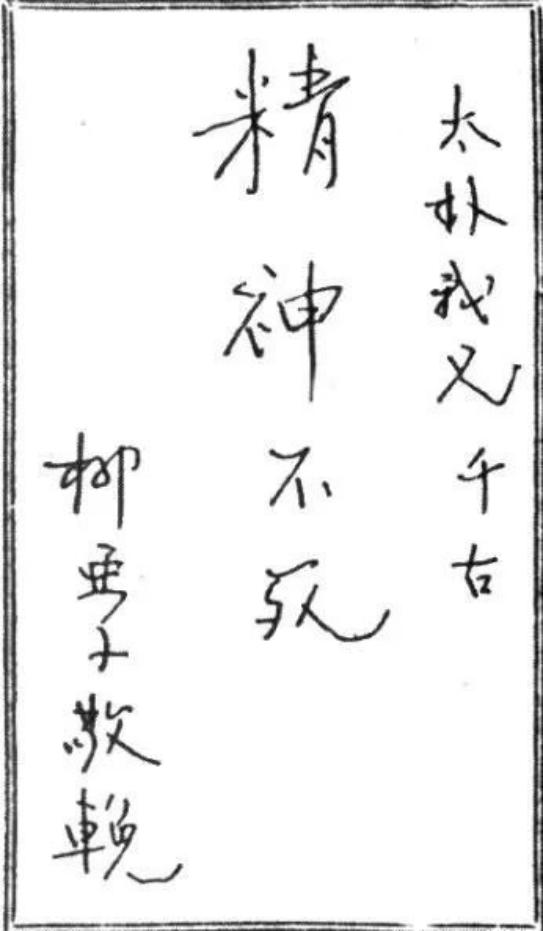 太朴我兄千古
精神不死
柳亞子敬輓